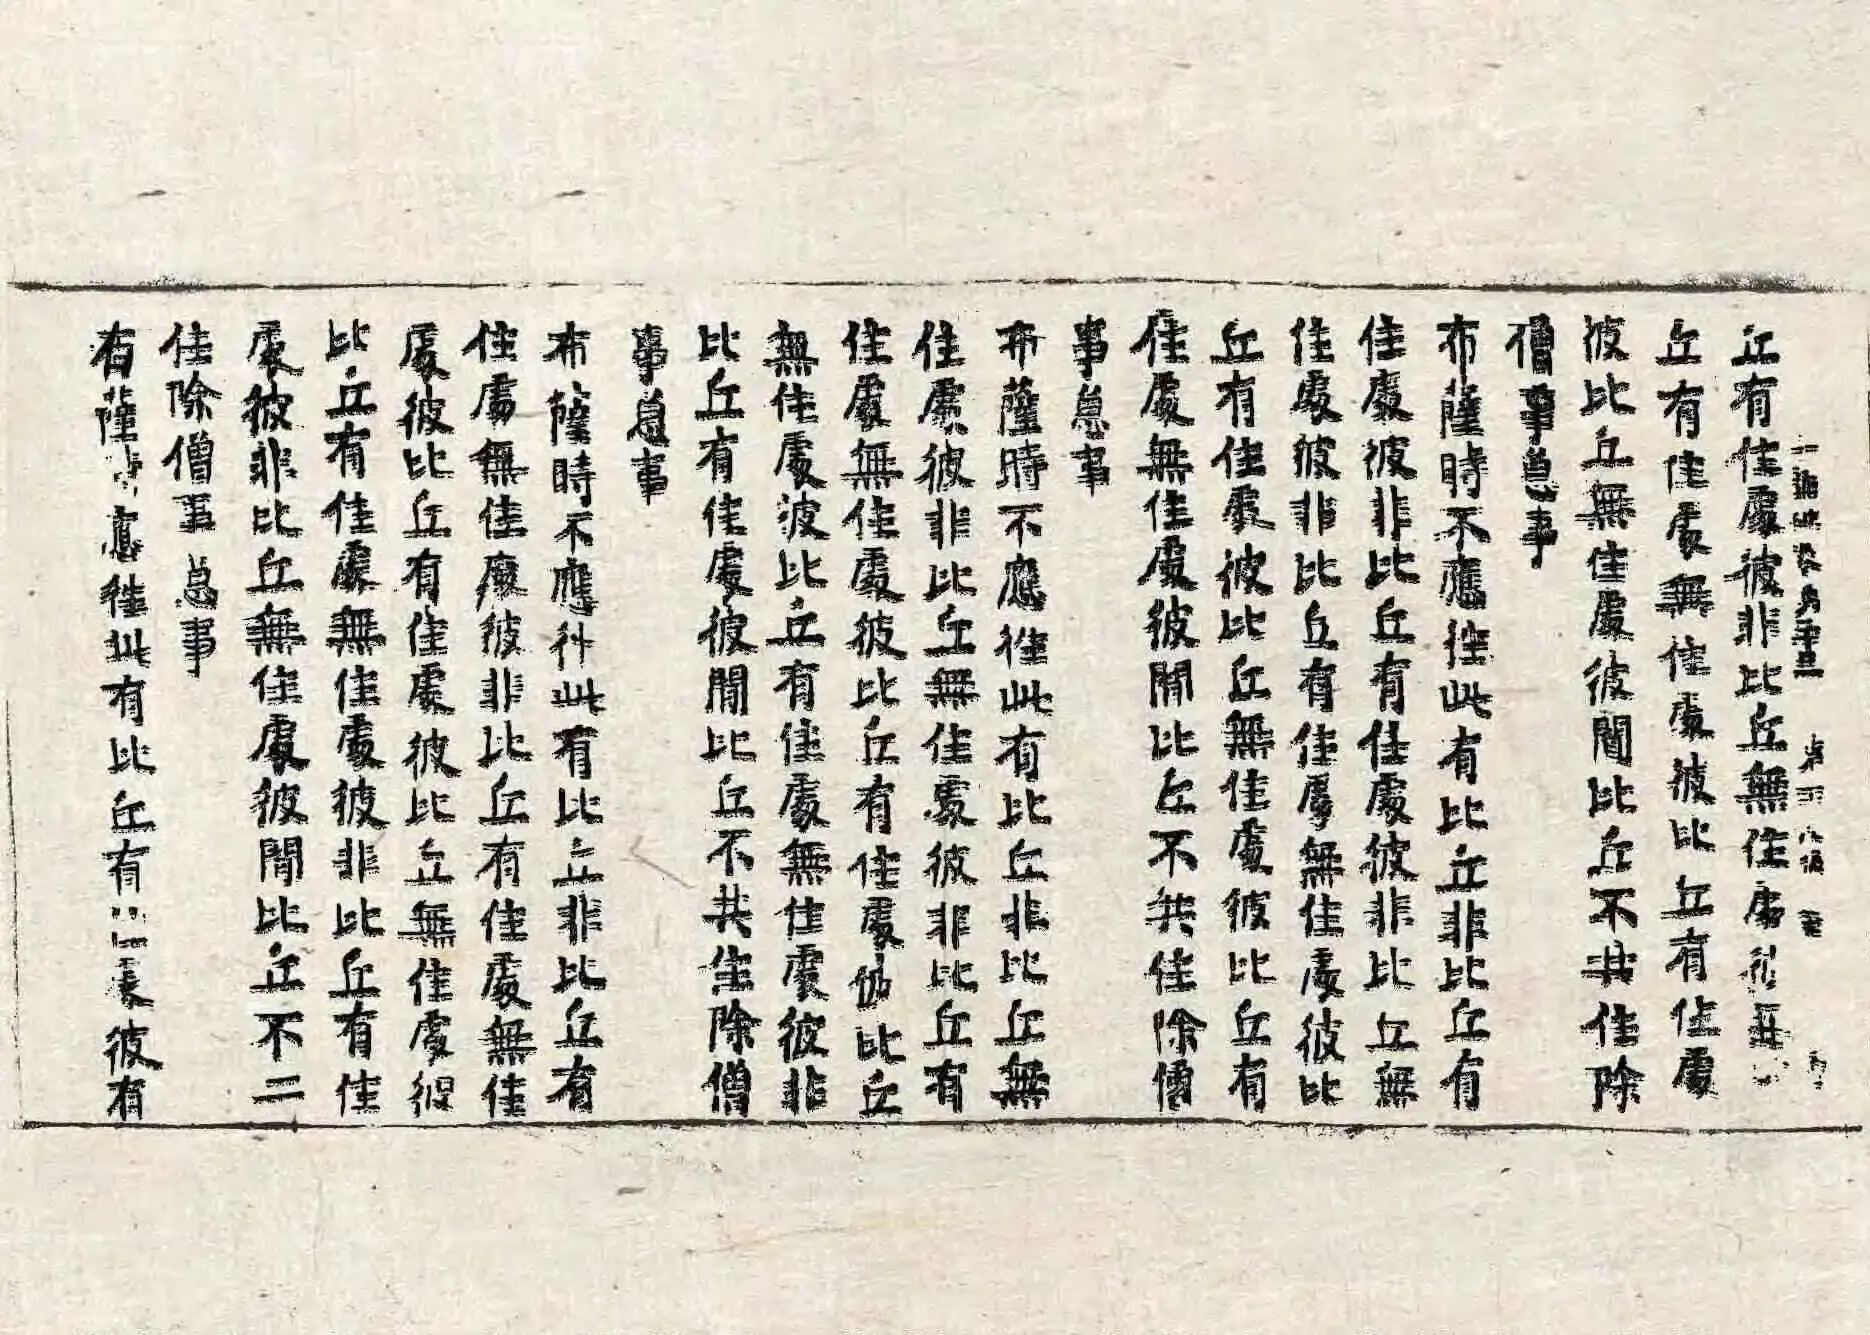 丘有住處彼非比丘無住處彼
丘有住處無住處彼比丘有住處
彼比丘無住處彼聞比丘不共住除
僧事急事
布薩時不應往此有比丘非比丘有
住處彼非比丘有住處彼非比丘無
住處彼非比丘有住處無住處彼比
丘有住處彼比丘無住處彼比丘有
住處無住處彼聞比丘不共住除僧
事急事
布薩時不應往此有比丘非比丘無
住處彼非比丘無住處彼非比丘有
住處無住處彼比丘有住處彼比丘
無住處彼比丘有住處無住處彼非
比丘有住處彼聞比丘不共住除僧
事急事
布薩時不應往此有比丘非比丘有
住處無住處彼非比丘有住處無住
處彼比丘有住處彼比丘無住處彼
比丘有住處無住處彼非比丘有住
處彼非比丘無住處彼聞比丘不二
住除僧事急事
有薩應往此有比丘有處彼有